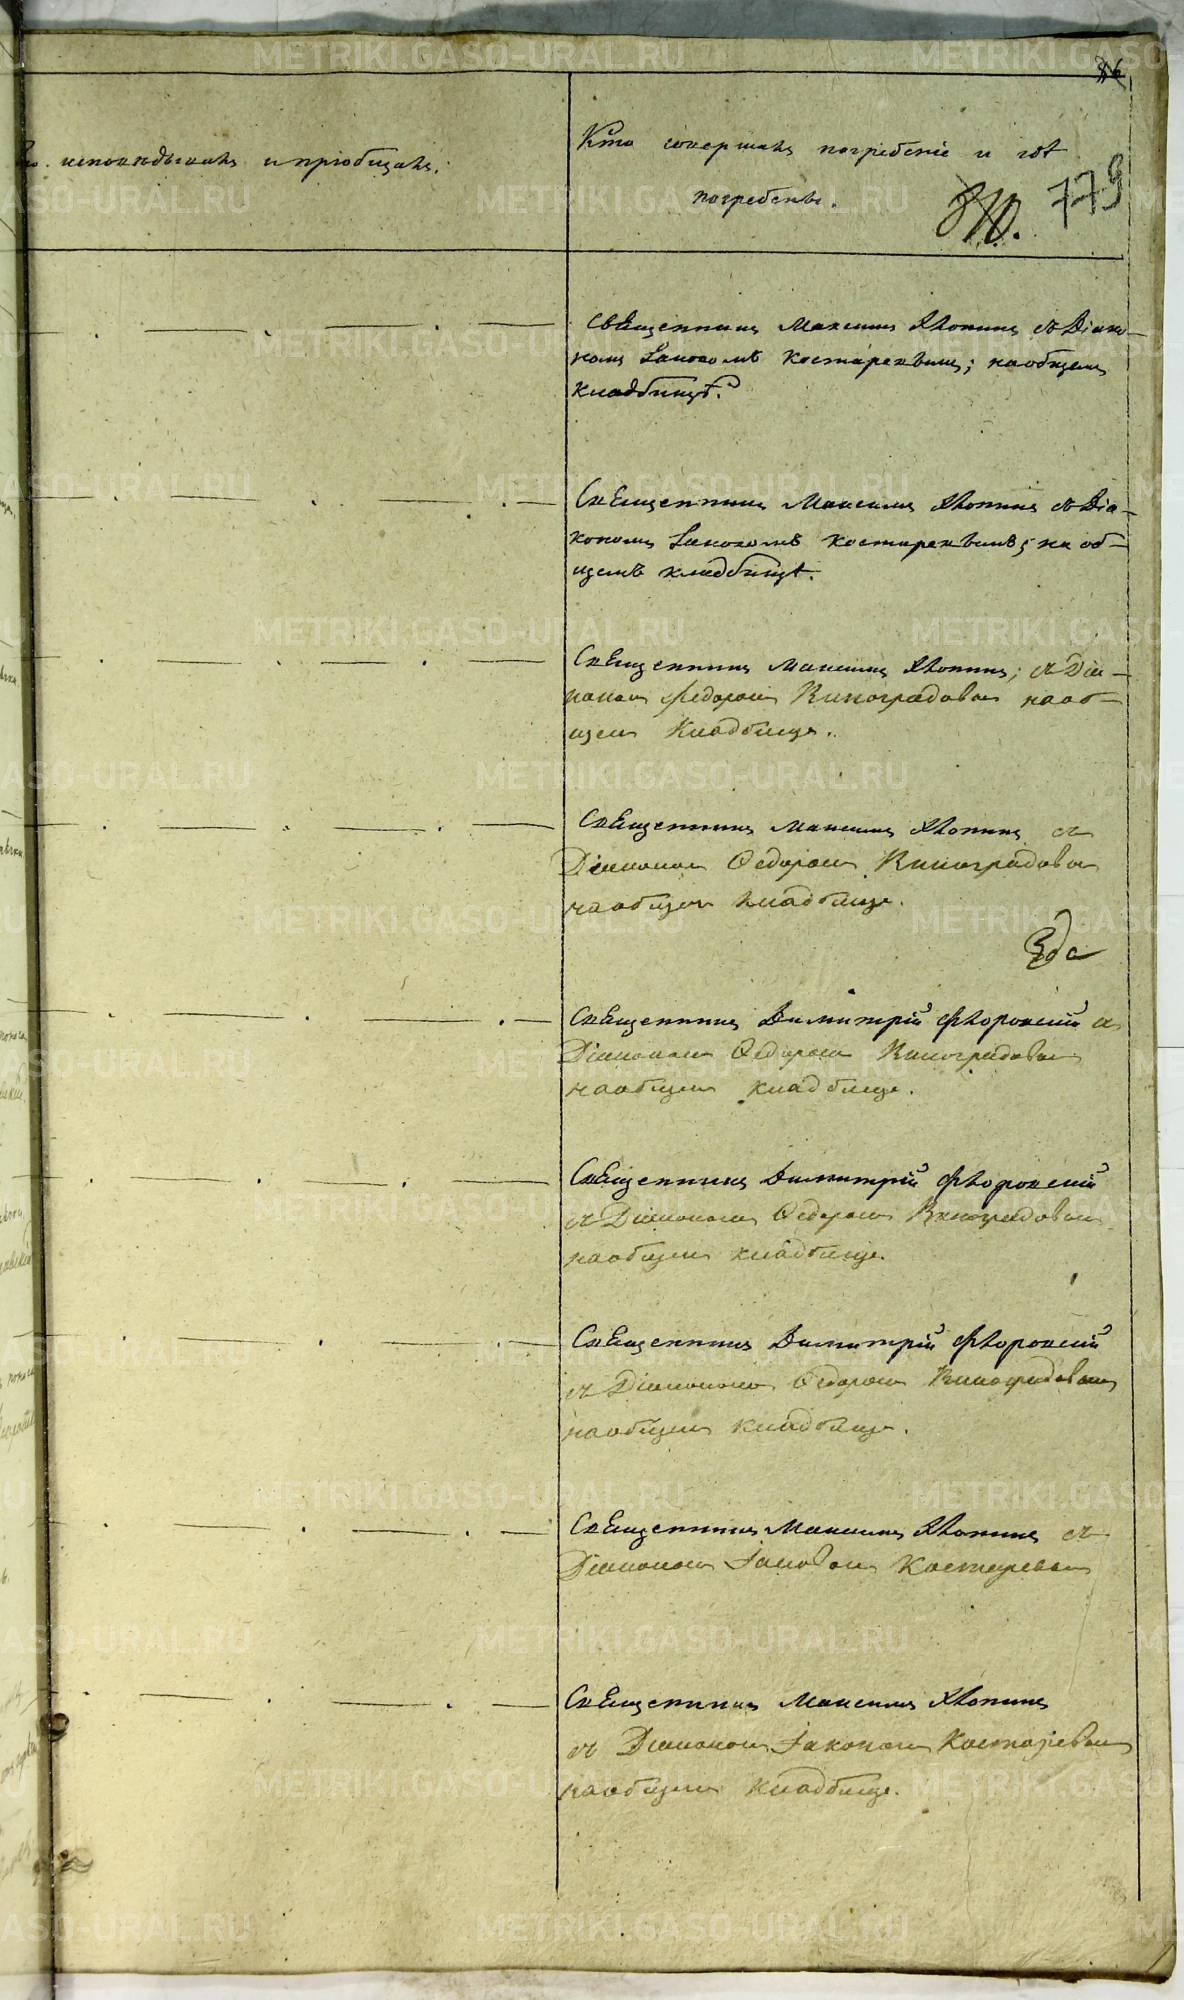 исповѣдывалъ и пріобщалъ.
Кто совершалъ погребеніе и гдѣ
погребены.
779
Священникъ Максимъ Хлопинъ съ Діако-
номъ Іаковомъ Костаревымъ; на общемъ
кладбищѣ.
Священникъ Максимъ Хлопинъ съ Діа-
кономъ Іаковомъ Костаревымъ; на об-
щемъ кладбищѣ.
Священникъ Максимъ Хлопинъ; съ Діа-
коном Федором Виноградовым на об-
щем кладбище.
Священникъ Максимъ Хлопинъ съ
Діаконом Ѳедором Виноградовым
на общем кладбище.
Священникъ Димитрій Флоровскій съ
Діаконом Ѳедором Виноградовым
на общем кладбище.
Священникъ Димитрій Флоровскій
съ Діаконом Ѳедором Виноградовым
на общем кладбище.
Священникъ Димитрій Флоровскій
съ Діаконом Ѳедором Виноградовым
на общем кладбище.
Священникъ Максимъ Хлопинъ съ
Діаконом Іаковом Костаревым
Священникъ Максимъ Хлопинъ
съ Діаконом Іаковом Костаревым
на общем кладбище.
METRIKI.GASO-URAL.RU